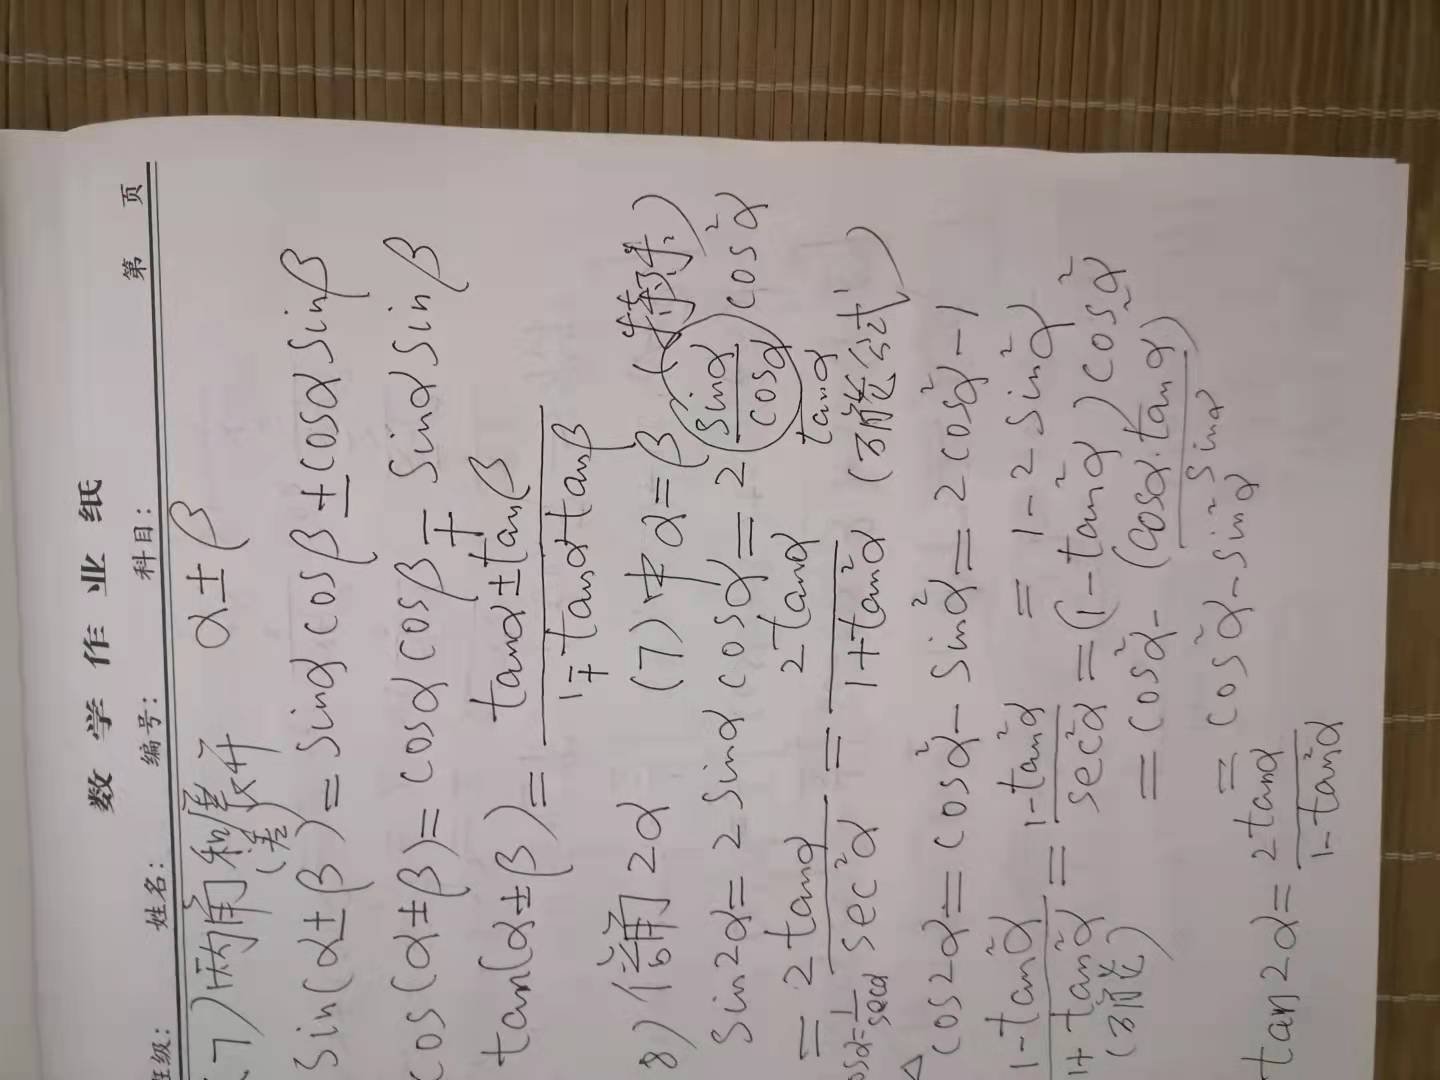 数学作业纸
班级: 姓名: 编号: 科目: 第 页
(7)两角和(差)展开 α±β
sin(α±β)=sinαcosβ±cosαsinβ
cos(α±β)=cosαcosβ∓sinαsinβ
tan(α±β)=(tanα±tanβ)/(1∓tanαtanβ)
8)倍角2α (7)中α=β(特殊)
sin2α=2sinαcosα=2(sinα/cosα)cos²α
tanα
=2tanα/sec²α=2tanα/(1+tan²α) (万能公式)
cosα=1/secα
△cos2α=cos²α-sin²α=2cos²α-1
=1-2sin²α
(1-tan²α)/(1+tan²α)=(1-tan²α)/sec²α=(1-tan²α)cos²α
(万能)
=cos²α-(cosα·tanα)²
sinα
=cos²α-sin²α
tan2α=2tanα/(1-tan²α)